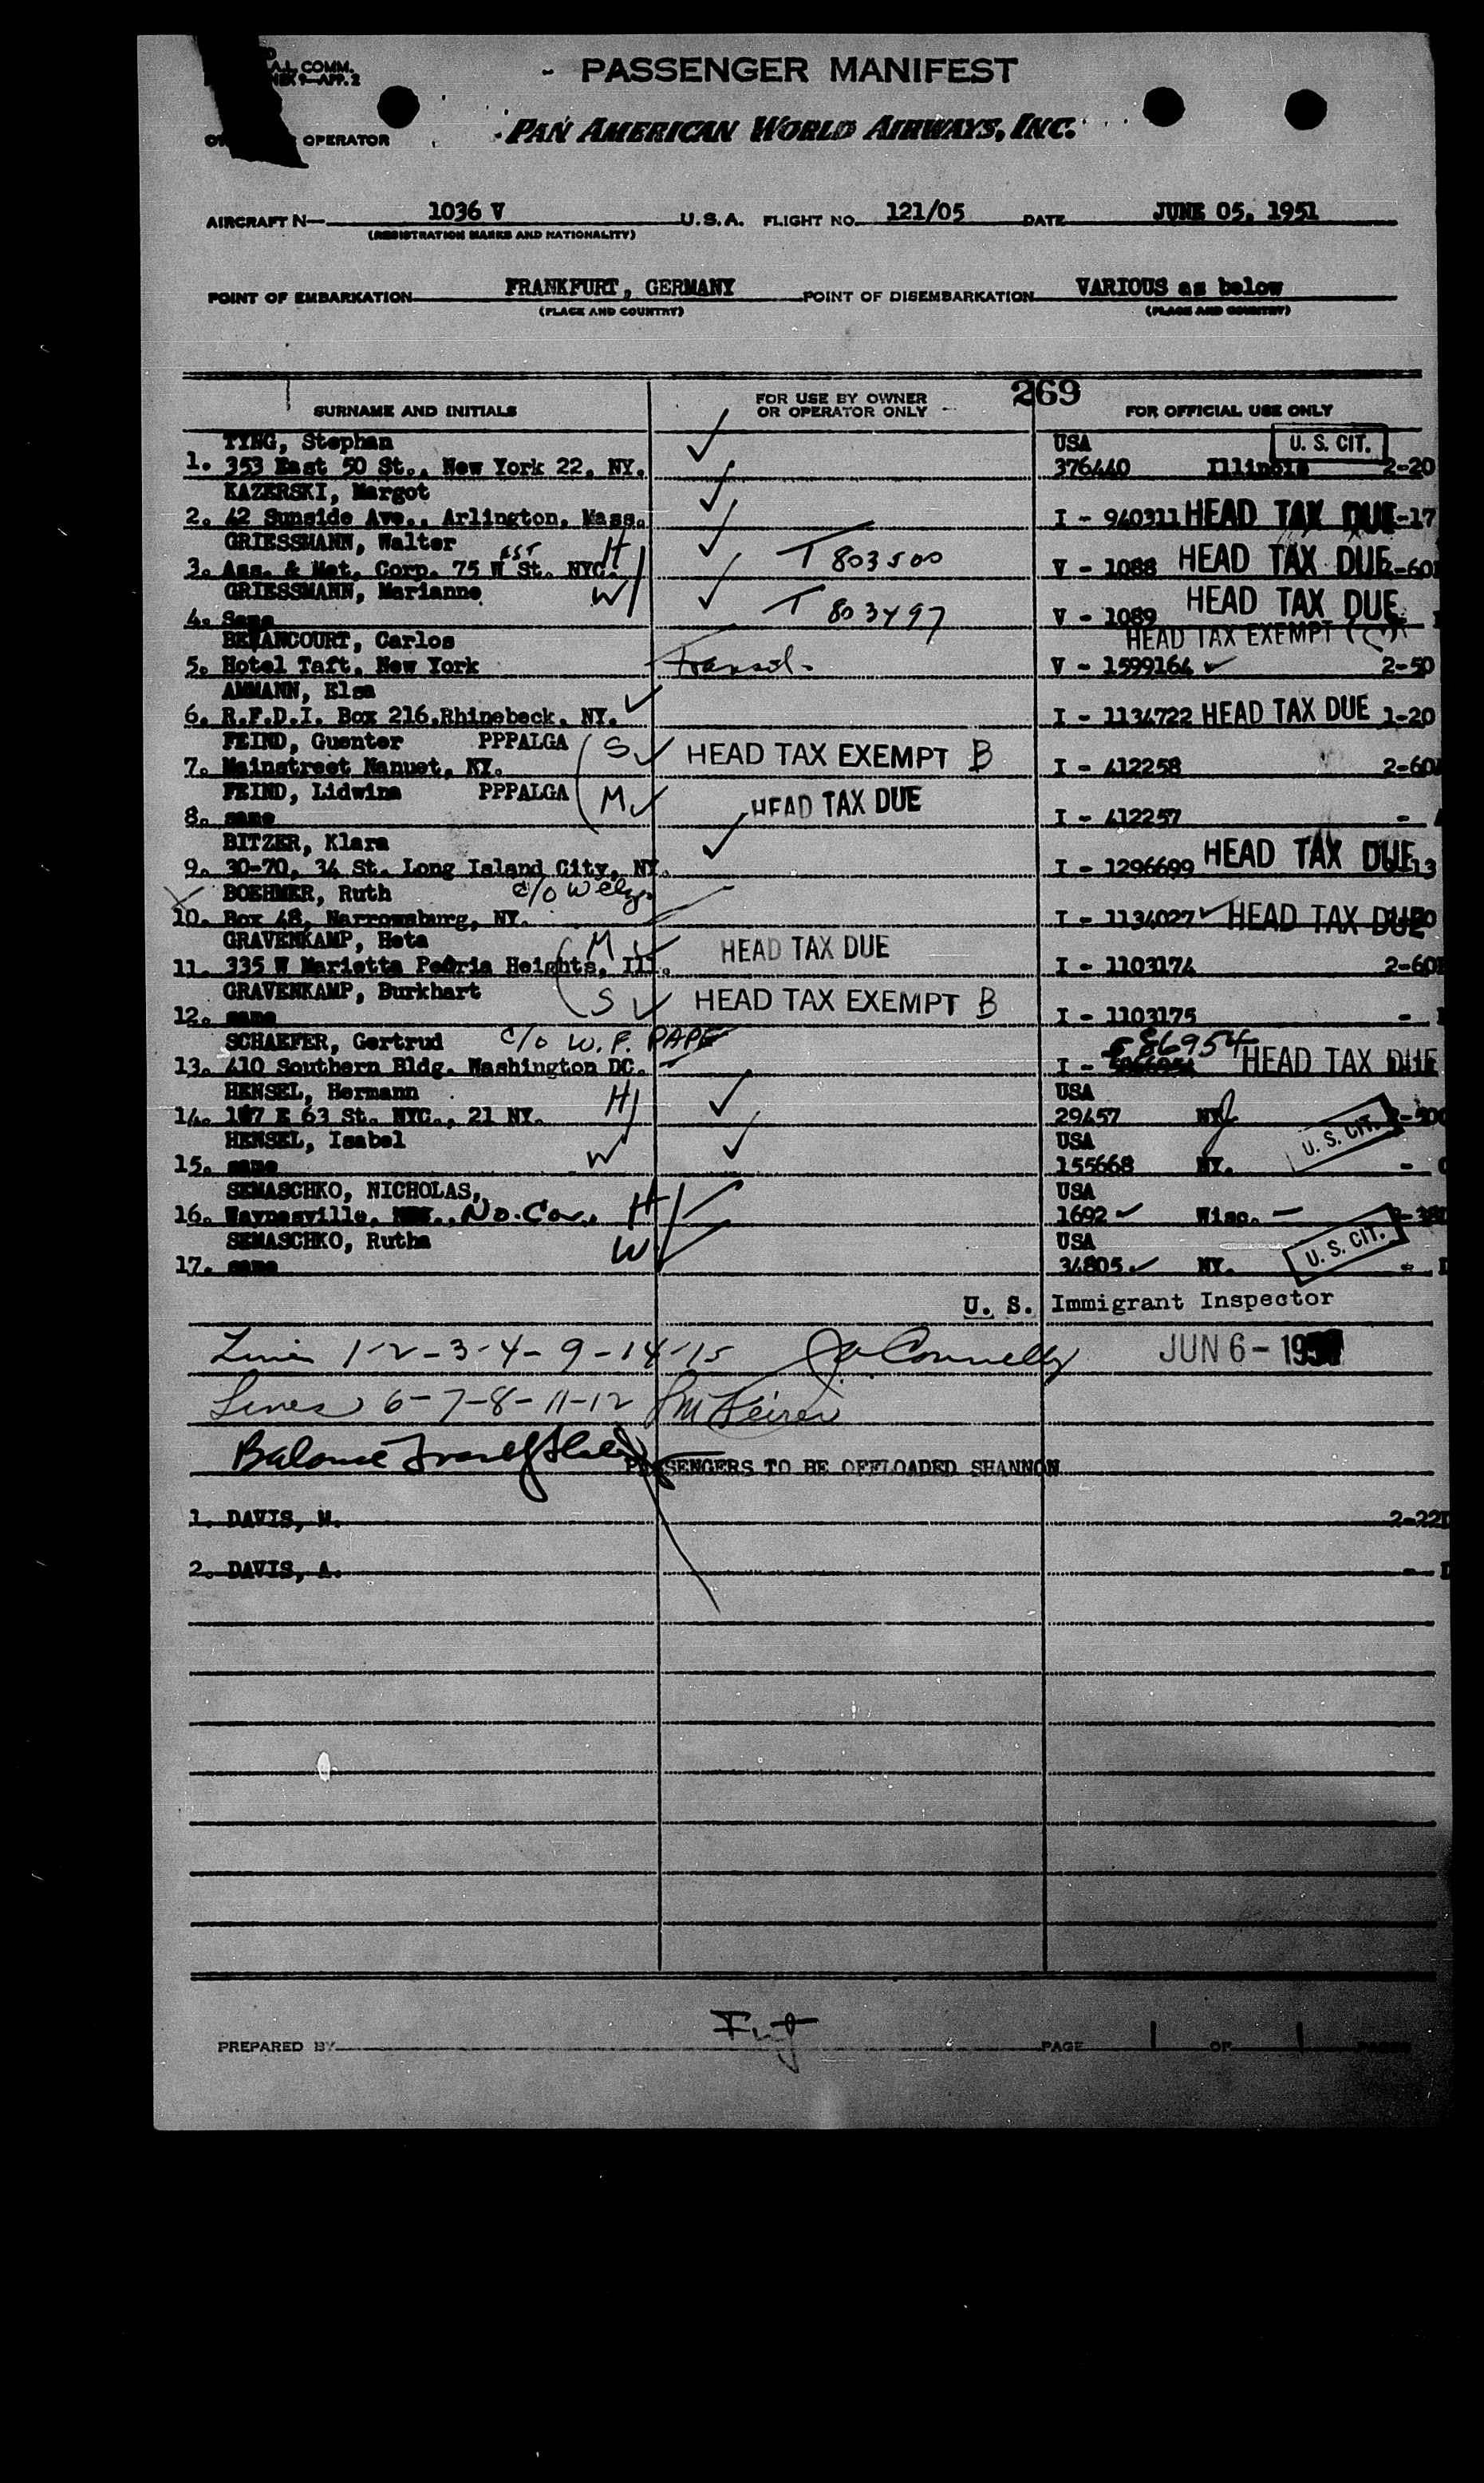 A.L. COMM.
9—APP. 2
- PASSENGER MANIFEST
OPERATOR
PAN AMERICAN WORLD AIRWAYS, INC.
AIRCRAFT N— 1036 V U.S.A. FLIGHT NO. 121/05 DATE JUNE 05, 1951
(REGISTRATION MARKS AND NATIONALITY)
POINT OF EMBARKATION FRANKFURT, GERMANY POINT OF DISEMBARKATION VARIOUS as below
(PLACE AND COUNTRY) (PLACE AND COUNTRY)
SURNAME AND INITIALS FOR USE BY OWNER OR OPERATOR ONLY 269 FOR OFFICIAL USE ONLY
TYNG, Stephan USA U. S. CIT.
1. 353 East 50 St., New York 22, NY. 376440 Illinois 2-20
KAZERSKI, Margot
2. 42 Sunside Ave., Arlington, Mass. I - 940311 HEAD TAX DUE -17
GRIESSMANN, Walter H
3. Ass. & Met. Corp. 75 W St. NYC. T 803500 V - 1088 HEAD TAX DUE -60
GRIESSMANN, Marianne W HEAD TAX DUE
4. Same T 803497 V - 1089
BETANCOURT, Carlos HEAD TAX EXEMPT
5. Hotel Taft, New York Transit. V - 1599164 2-50
AMMANN, Elsa
6. R.F.D.I. Box 216, Rhinebeck, NY. I - 1134722 HEAD TAX DUE 1-20
FEIND, Guenter PPPALGA S HEAD TAX EXEMPT B
7. Mainstreet Nanuet, NY. I - 412258 2-60
FEIND, Lidwina PPPALGA M HEAD TAX DUE
8. same I - 412257 -
BITZER, Klara
9. 30-70, 34 St. Long Island City, NY. I - 1296699 HEAD TAX DUE 13
BOEHMER, Ruth c/o
10. Box 48, Narrowsburg, NY. I - 1134027 HEAD TAX DUE
GRAVENKAMP, Heta M HEAD TAX DUE
11. 335 W Marietta Peoria Heights, Ill. I - 1103174 2-60
GRAVENKAMP, Burkhart S HEAD TAX EXEMPT B
12. same I - 1103175 -
SCHAEFER, Gertrud c/o W. F. PAPE 586954
13. 410 Southern Bldg. Washington DC. I - HEAD TAX DUE
HENSEL, Hermann H USA
14. 107 E 63 St. NYC., 21 NY. 29457 NY U. S. CIT. 2-50
HENSEL, Isabel W USA
15. same 155668 NY. -
SEMASCHKO, NICHOLAS, H USA
16. Waynesville, No. Car. 1692 Wisc. - -38
SEMASCHKO, Rutha W USA
17. same 34805 NY. U. S. CIT. -
U. S. Immigrant Inspector
Lines 1-2-3-4-9-14-15 J. Connelly JUN 6 - 1951
Lines 6-7-8-11-12
Balance
PASSENGERS TO BE OFFLOADED SHANNON
1. DAVIS, M. 2-22
2. DAVIS, A. -
PREPARED BY PAGE 1 OF 1 PAGES